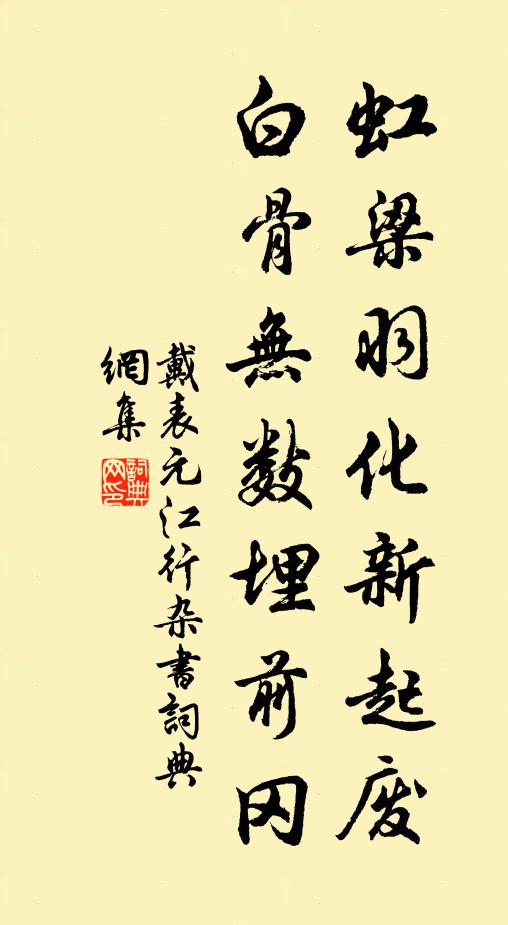 虹梁羽化新起废
白骨無数埋前冈
戴表元江行杂書詞典
網集
詞典
网印